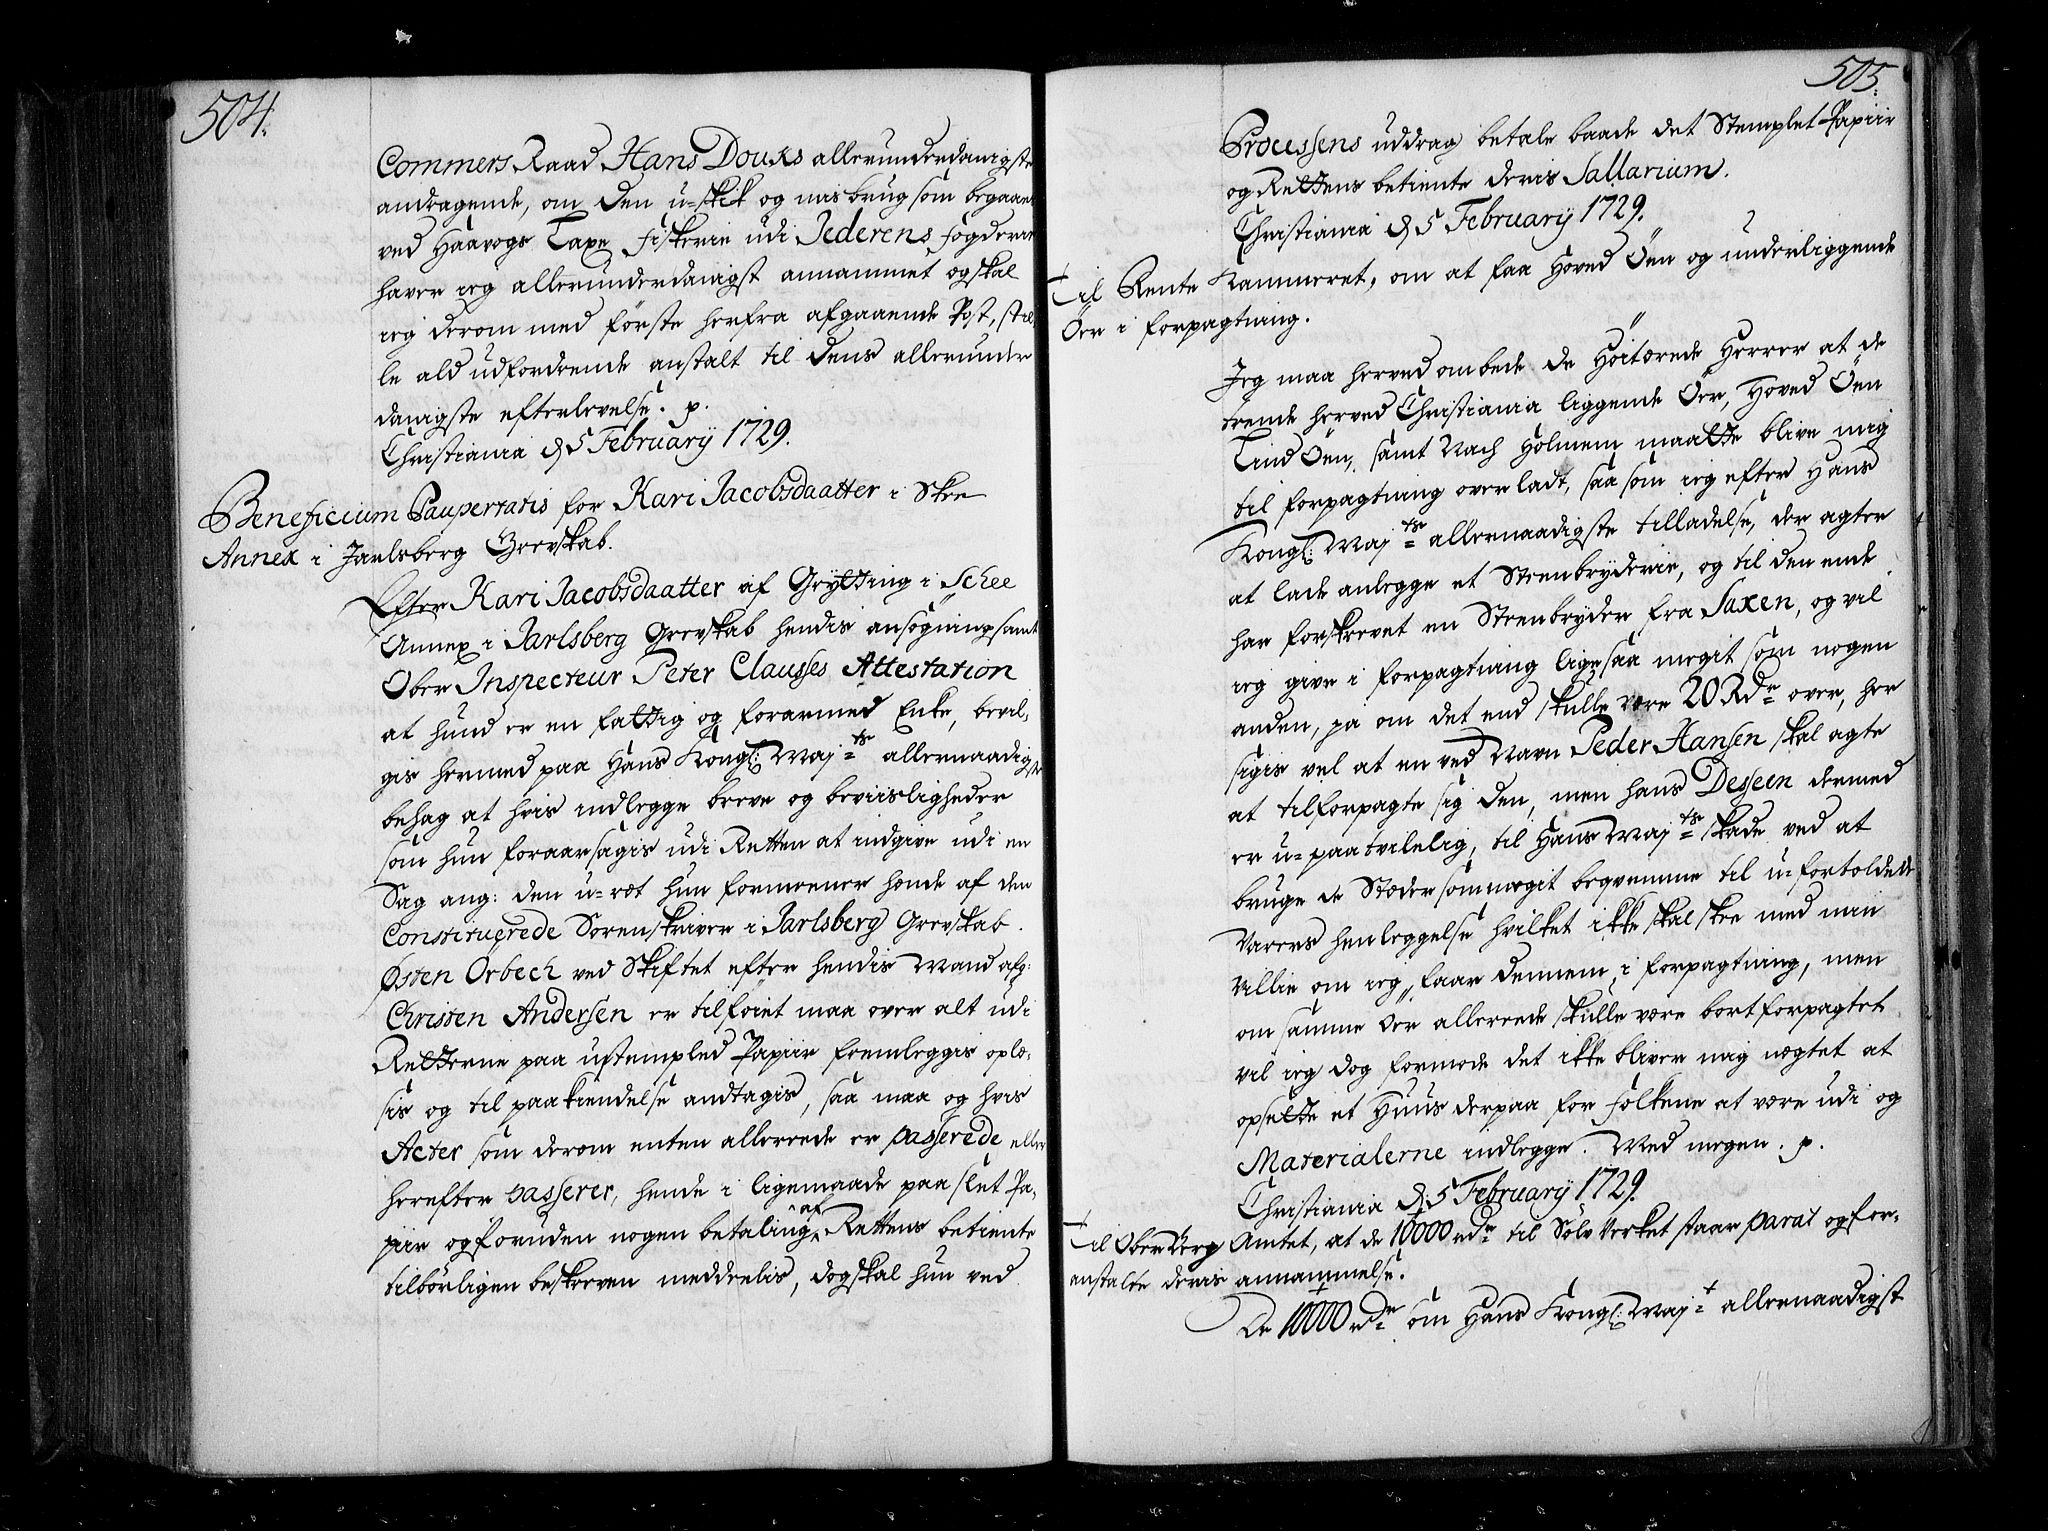 504.
Commers Raad Hans Douks allerunderdanigste
andragende, om den u-skik og misbrug som begaaes
ved Haavogs Laxe fiskerie udi Jederens fogderie
haver ieg allerunderdanigst annammet og skal
ieg derom med förste herfra afgaaende Post, stil-
le ald udfordrende anstalt til dens allerunder
danigste efterlevelse. p.
Christiania d 5 February 1729.
Beneficium Paupertatis for Kari Jacobsdaatter i Skee
Annex i Jarlsberg Grevskab.
Efter Kari Jacobsdaatter af Grytting i Schee
Annex i Jarlsberg Grevskab hendis ansögning samt
Ober Inspecteur Peter Clausses Attestation
at hund er en fattig og forarmed Enke, bevil-
gis hermed paa Hans Kongl: Maj:ts allernaadigste
behag at hvis indlegge breve og beviisligheder
som hun foraarsagis udi Retten at indgive udi en
Sag ang: den u-ræt hun formeener hende af den
Constituerede Sorenskriver i Jarlsberg Grevskab
Østen Örbech ved Skiftet efter hendis Mand afg:
Christen Andersen er tilföiet maa over alt udi
Retterne paa ustempled Papiir fremleggis oplæ-
sis og til paakiendelse andtagis, saa maa og hvis
Acter som derom enten allerrede er passerede eller
herefter passerer, hende i ligemaade paa slet Pa-
piir og foruden nogen betaling af Rettens betiente
tilbörligen beskreven meddeelis, dog skal hun ved
505.
Processens uddrag betale baade det Stemplet Papiir
og Rettens betiente deris Sallarium.
Christiania d 5 February 1729.
Til Rente Kammeret, om at faa Hoved Öen og underliggende
Öer i forpagtning.
Jeg maa herved ombede de Höitærede Herrer at de
trende herved Christiania liggende Öer, Hoved Öen
Lind Öen, samt Nach Holmen maatte blive mig
til forpagtning overladt, saa som ieg efter Hans
Kongl: Maj:ts allernaadigste tilladelse, der agter
at lade anlegge et Steenbryderie, og til den ende
har forskrevet en Steenbryder fra Saxen, og vil
ieg give i forpagtning ligesaa megit som nogen
anden, ja om det end skulle være 20 Rdr over, her
sigis vel at en ved Navn Peder Hansen skal agte
at tilforpagte sig den, men hans Desseen dermed
er u-paatvilelig, til Hans Maj:ts skade ved at
bruge de Stæder som megit beqvemme til u-fortoldede
Varers henleggelse hvilket ikke skal skee med min
Villie om ieg faar dennem i forpagtning, men
om samme Öer allerrede skulle være bortforpagtet
vil ieg dog formode det ikke bliver mig nægtet at
opsette et Huus derpaa for folkene at være udi og
Materialerne indlegge. Med megen. p.
Christiania d. 5 February 1729.
Til Ober Berg Amtet, at de 10000 rdr til Sölv Verket staar parat og for-
anstalte deris annammelse.
De 10000 rdr som Hans Kongl: Maj:t allernaadigst